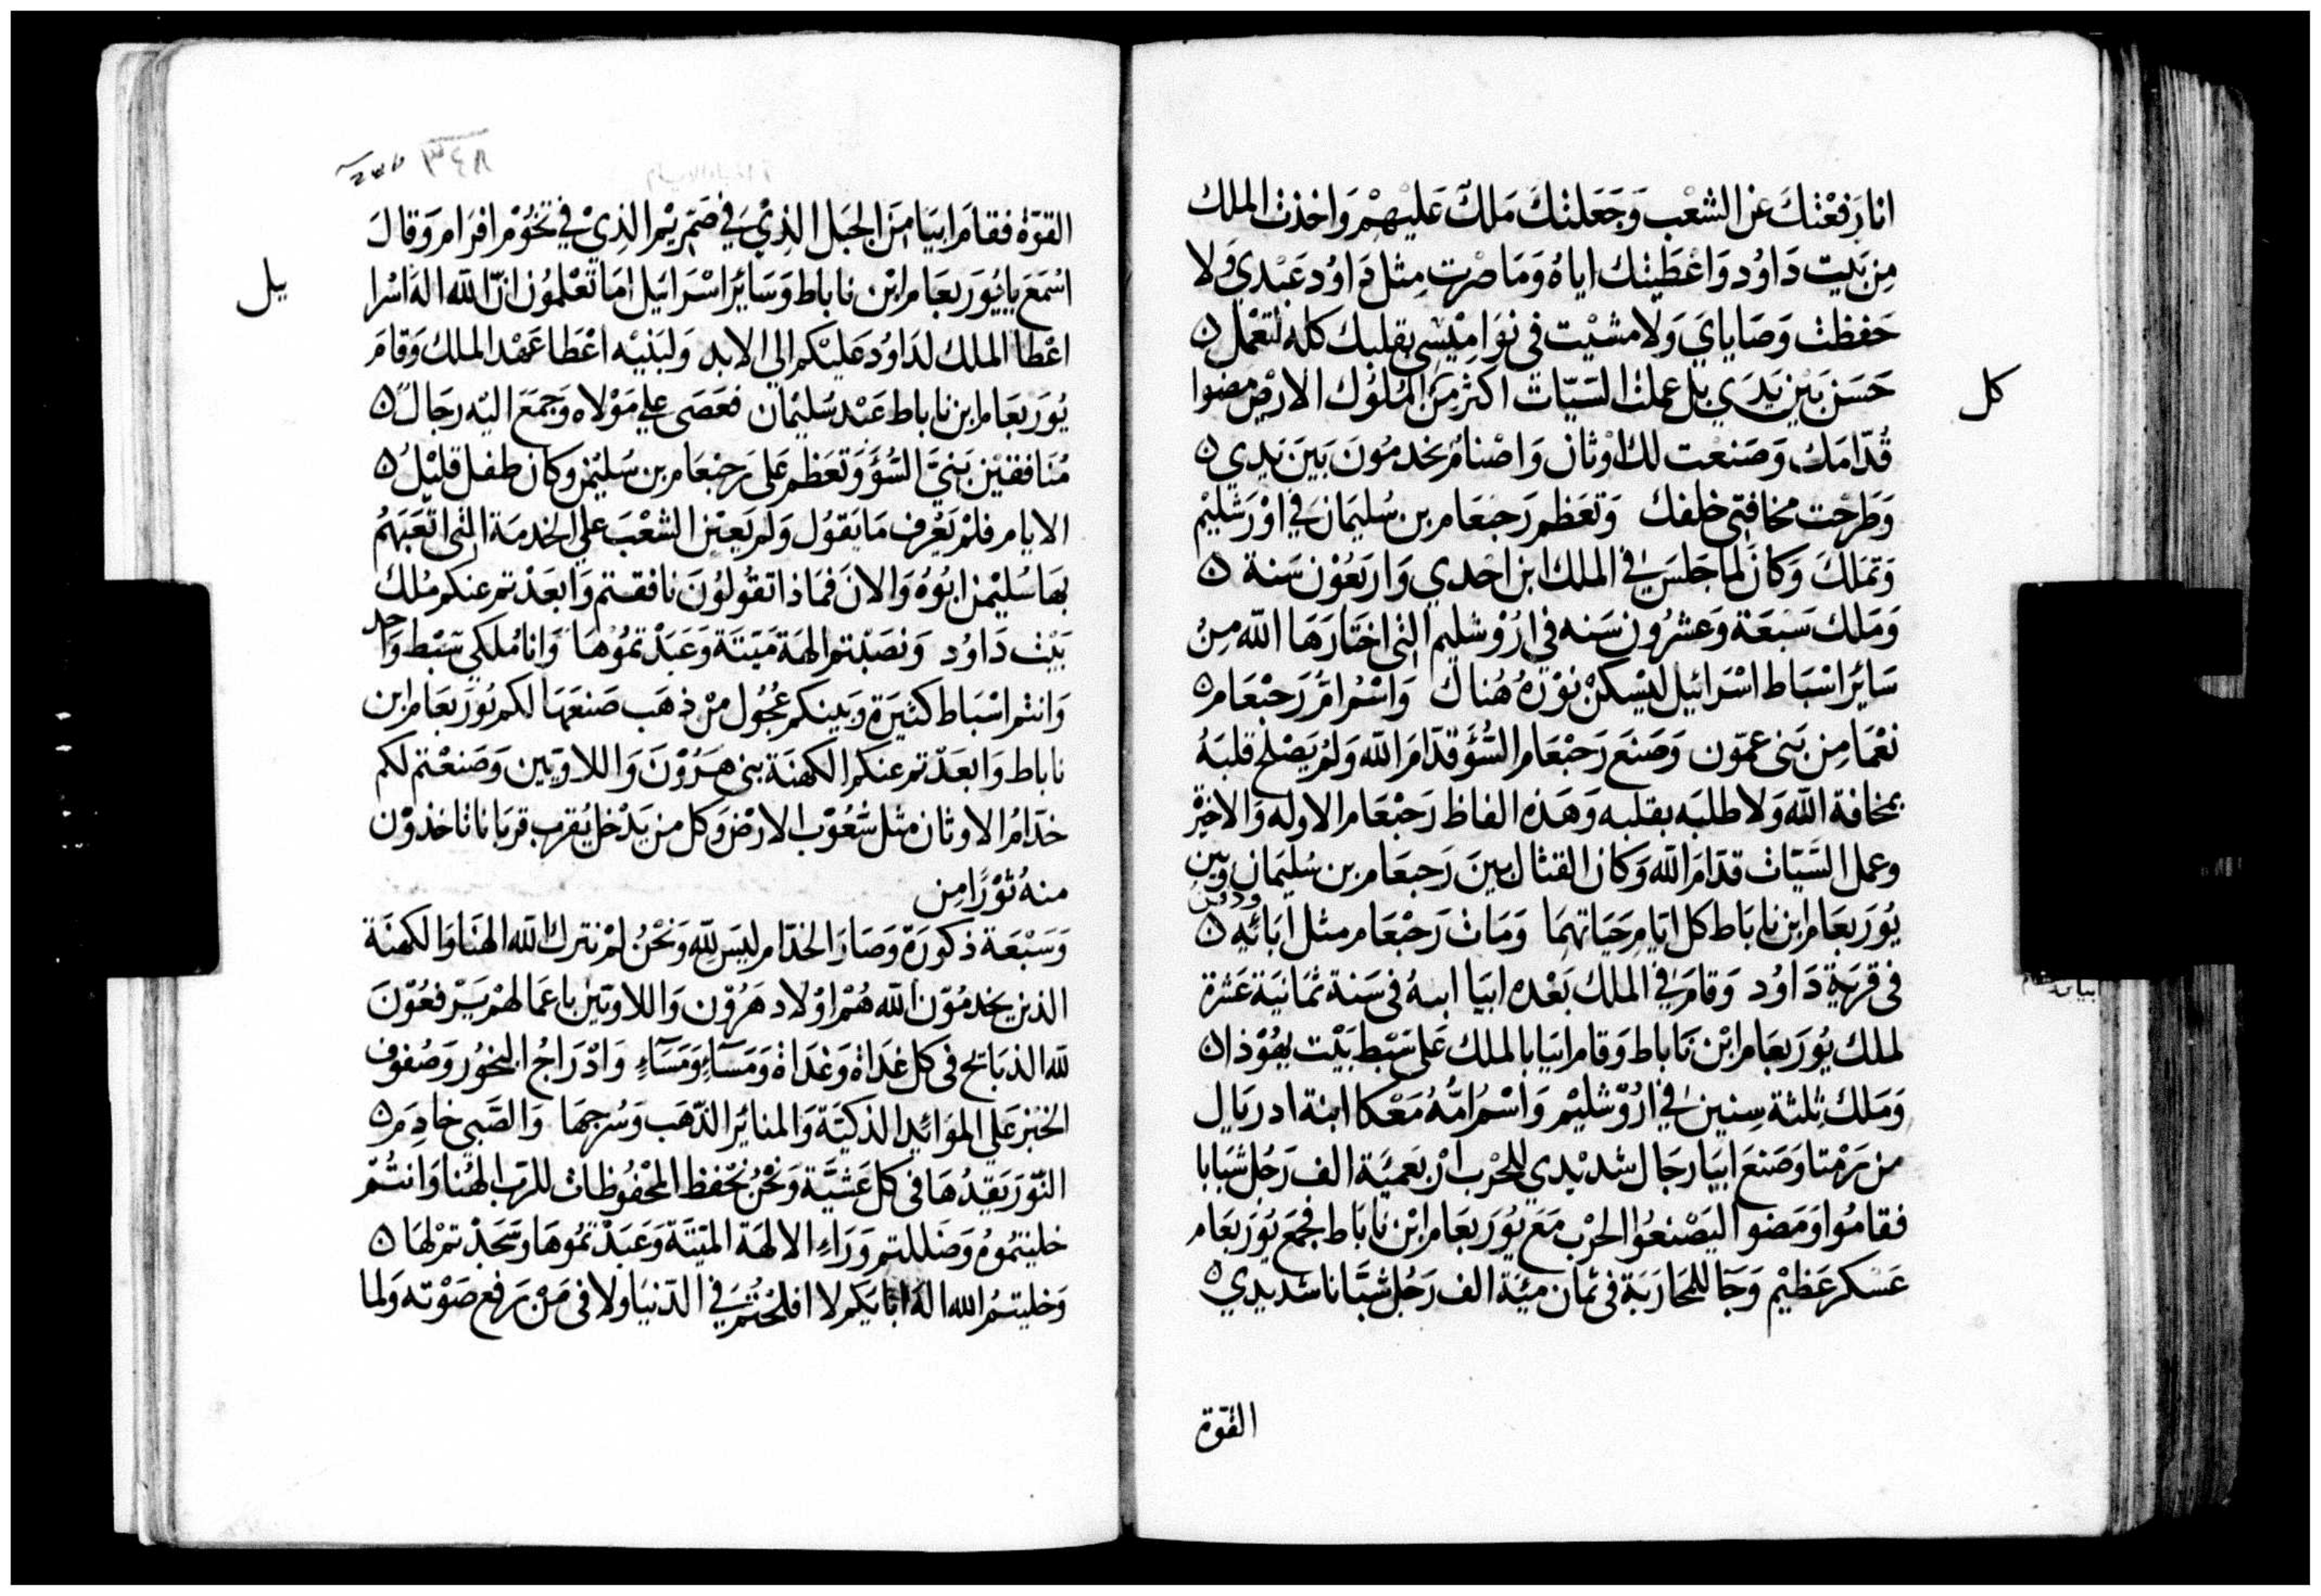 انا رَفعْتكَ عَن الشعْب وَجَعَلتكَ مَلكً عَليْهمْ وَاخذت الملك
مِن بَيت دَاوُد وَاعْطَيتك اياهُ وَمَا صْرت مِثل دَاوُد عَبْدي وَلا
حَفظت وَصَاياي وَلا مشيْت في نوَامِيْسي بقلبك كله لتعْمل ٥
حَسَن بَيْن يَدَي بل عملت السَيّات اكثر مِنَ الملوُك الارض مضوا
كل
قُدّامَك وَصَنعْت لك اوْثان وَاصْنامْ يخدمُونَ بَينَ يَدي ٥
وَطَرحْت مخافتي خلفك وَتعَظم رَحبعَام بن سُليمَان في اوْرَشليْم
وَتمَلكَ وَكانَ لما جَلسَ في الملك ابن احْدي وَاربَعُوْن سَنة ٥
وَمَلك سَبْعَة وَعشرُون سَنه في ارُوْشليم التي اختارَهَا الله مِنْ
سَائر اسْبَاط اسْرَائيل ليْسكنْ نوْرهُ هُناك وَاسْم امُ رَحبْعَام ٥
نعْمَا مِن بَني عمّون وَصَنعَ رَحبْعَام السُّؤَ قدّامَ الله وَلمْ يَصْلح قلبَهُ
بمخافة الله وَلا طلبَه بقلبه وَهَذه الفاظ رَحبْعَام الاوله وَالاخيْرْ
وعمل السَّيّات قدّامَ الله وَكان القتال بينَ رَحبعَام بن سُليمَان وَبين
يُوَربعَام ابن نابَاط كل ايّام حَيَاتهمَا وَمَات رَحبْعَام مثل ابَائهِ ٥ ودفن
في قريَة دَاوُد وَقامَ في الملك بَعْده ابيَا ابنهُ في سَنة ثمَانيَة عَشرة
لملك يُوَربعَام ابْن نَاباط وَقام ابيَا بالملك عَلى سَبْط بَيْت يهُوْذا ٥
وَمَلك ثلثة سِنين في ارُوْشليْم وَاسْم امُّهُ مَعْكا ابنة ادريَال
من رَمْتا وَصَنعَ ابيَا رجَال شديْدي للحْرب ارْبَعميَة الف رَجُل شبَابا
فقامُوا وَمَضوا ليَصْنعُوا الحرْب مَعَ يُوَربعَام ابْن نابَاط فجمَع يُوَربَعَام
عَسْكر عَظيْم وَجَا للمحَارَبَة في ثمَان ميَّة الف رَجُل شبَّانا شديدي ٥
القوّة
القوّة فقامَ ابيَا مِنَ الجبَل الذِيْ في صَمَريْم الذِيْ في تخوُم افرَام وَقالَ
اسْمَع يا يُوَربعَام ابْن ناباط وَسَائر اسْرَائيل امَا تعْلمُون انّ الله اله اسْرا
يل
اعْطا الملك لدَاوُد عَليْكم الي الابد وَلبَنيْه اعْطا عَهْد الملك وَقامَ
يُوَربعَام ابن ناباط عَبْد سُليْمان فعَصَى علي مَوْلاه وَجمَعَ اليْه رجَالً ٥
مُنَافقيْن بَنيَّ السُّؤَ وَتعَظم عَلى رَحبْعَام بن سُليْمن وكان طفل قليْل ٥
الايام فلمْ يَعْرف مَا يَقوُل وَلم يَعيْن الشعْبَ علي الخدمَة التي اتعَبَهُم
بهَا سُليْمن ابُوهُ وَالانَ فمَاذا تقوُلوُنَ نافقتم وَابعَدْتم عنكم مُلك
بَيْت دَاوُد وَنصَبْتم الهَة مَيتَة وَعَبَدْتموُهَا وَانا مُلكي سَبْط وَاحد
وَانتم اسْبَاط كثيرَة وَبينكم عُجُول منْ ذهَب صَنعَهَا لكم يُوَربعَام ابن
ناباط وَابعَدّتم عنكم الكهنَة بني هَرُوْنَ وَاللاويّين وَصَنعْتم لكم
خدّامُ الاوثان مثل شُعُوْب الارض وَكل من يَدْخل يُقرب قربَانا تاخذوْن
منهُ ثوْرًا مِن
وَسَبْعَة ذكورَة وَصَارَ الخدّام ليَسَ للّه وَنَحْنُ لمْ نترك الله الهنَا وَالكهنَة
الذين يخدمُوْن للّه هُمْ اوْلاد هَرُوْن وَاللاويّين باعمَالهمْ يَرْفعُوْنَ
للّه الذبَائح في كل غدَاة وَغدَاة وَمَسَآءٍ وَمَسَآءٍ وَادْرَاجُ البخوُر وَصُفوف
الخبْز عَلي الموَائد الذكيَّة وَالمنائر الذّهَب وَسُرجهَا وَالصَّبي خادِمَ ٥
النّوْرَ يَقدُهَا في كل عَشيَّة وَنحْنُ نحْفظ المحْفوُظات للرّب الهُنا وَانتُمْ
خليتمُوهُ وَضَللتم وَرَاءِ الالهَة الميّتَة وَعَبَدْتمُوهَا وَسَجَدْتمْ لهَا ٥
وَخليتمُ الله الهَ ابَايكم لا افلحْتُمْ في الدّنيَا ولا في مَنْ يَرفع صَوْته وَلما